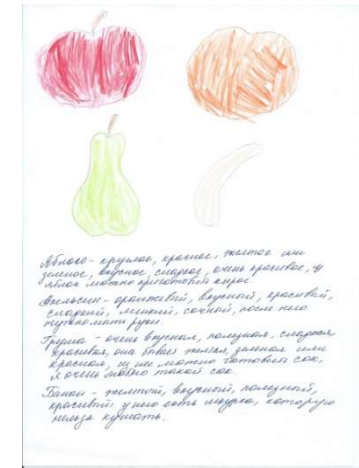 Яблоко - круглое, красное, желтое или
зеленое, вкусное, сладкое, очень красивое, из
яблок можно приготовить пирог.
Апельсин - оранжевый, вкусный, красивый,
сладкий, сочный, после него
нужно мыть руки.
Груша - очень вкусная, полезная, сладкая,
красивая, она бывает желтая, зеленая или
красная, из нее можно готовить сок,
я очень люблю такой сок.
Банан - желтый, вкусный, полезный,
красивый у него есть шкурка, которую
нельзя кушать.